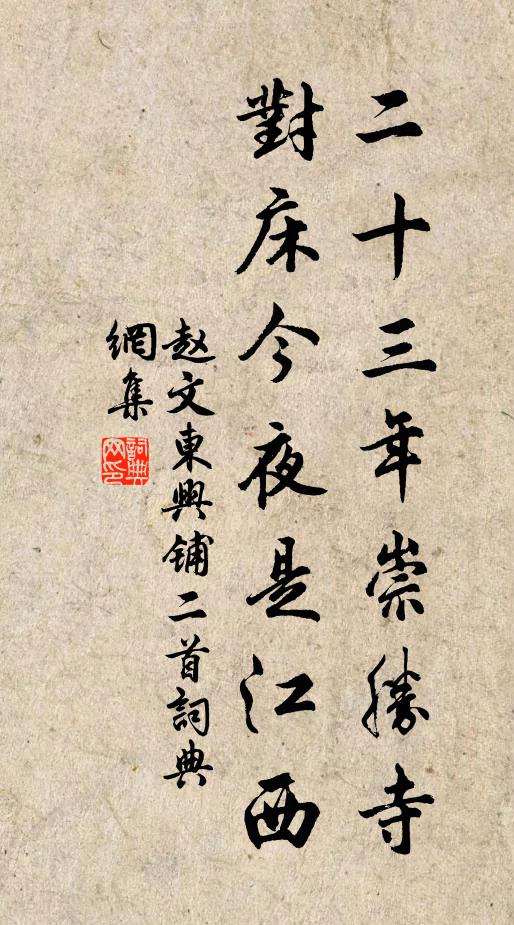 二十三年崇勝寺
對床今夜是江西
赵文東興铺二首詞典
網集
詞典
网印